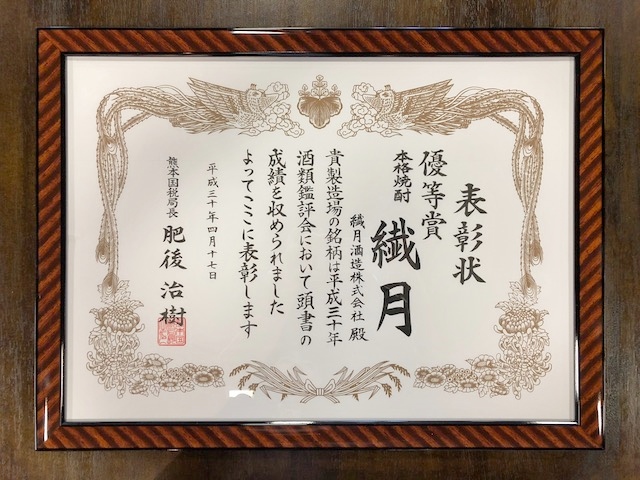 表彰状
優等賞
本格焼酎
繊月
繊月酒造株式会社 殿
貴製造場の銘柄は平成三十年
酒類鑑評会において頭書の
成績を収められました
よってここに表彰します
平成三十年四月十七日
熊本国税局長
肥後治樹